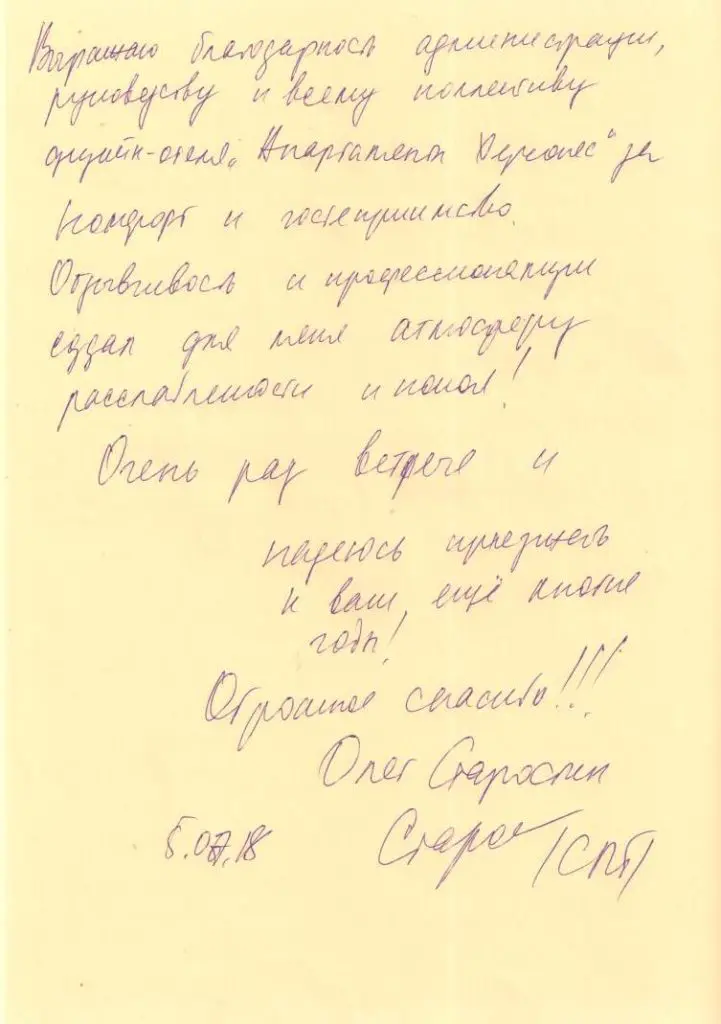 Выражаю благодарность администрации,
руководству и всему коллективу
дизайн-отеля „Апартаменты Херсонес" за
комфорт и гостеприимство.
Отзывчивость и профессионализм
создал для меня атмосферу
расслабленности и покоя!
Очень рад встрече и
надеюсь приезжать
к вам, ещё многие
годы!
Огромное спасибо!!!
Олег Старостин
5.07.18 Старо /СПб/